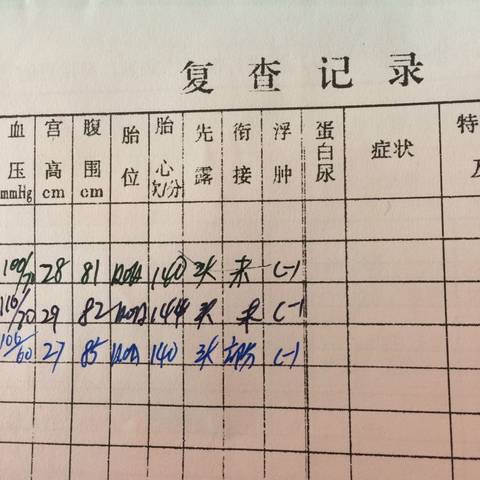 复查记录
血压mmHg 宫高cm 腹围cm 胎位 胎心次/分 先露 衔接 浮肿 蛋白尿 症状 特
100/70 28 81 LOA 140 头 未 (-)
116/70 29 82 LOA 144 头 未 (-)
106/60 27 85 LOA 140 头 (-)